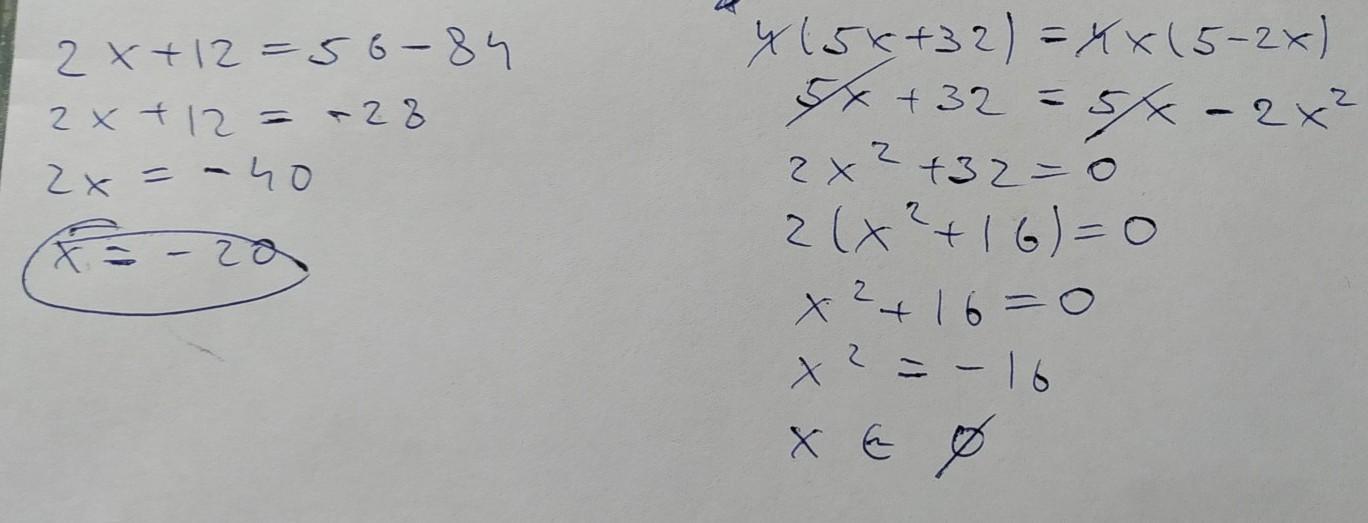 2x+12=56-84
2x+12=-28
2x=-40
x=-20
4(5x+32)=4x(5-2x)
5x+32=5x-2x²
2x²+32=0
2(x²+16)=0
x²+16=0
x²=-16
x∈∅